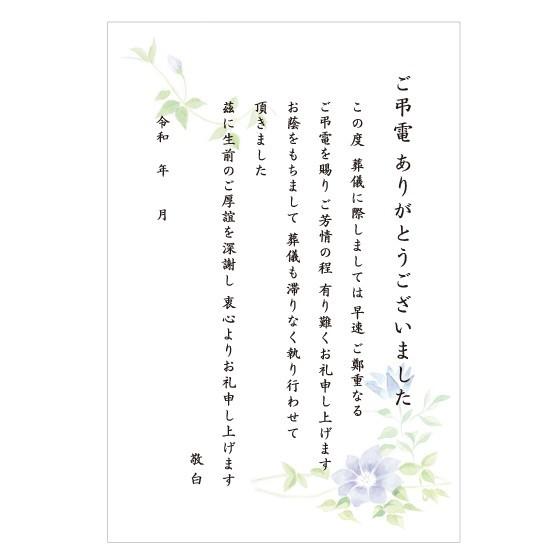 ご弔電 ありがとうございました
この度 葬儀に際しましては 早速 ご鄭重なる
ご弔電を賜り ご芳情の程 有り難くお礼申し上げます
お蔭をもちまして 葬儀も滞りなく執り行わせて
頂きました
茲に生前のご厚誼を深謝し 衷心よりお礼申し上げます
敬白
令和 年 月